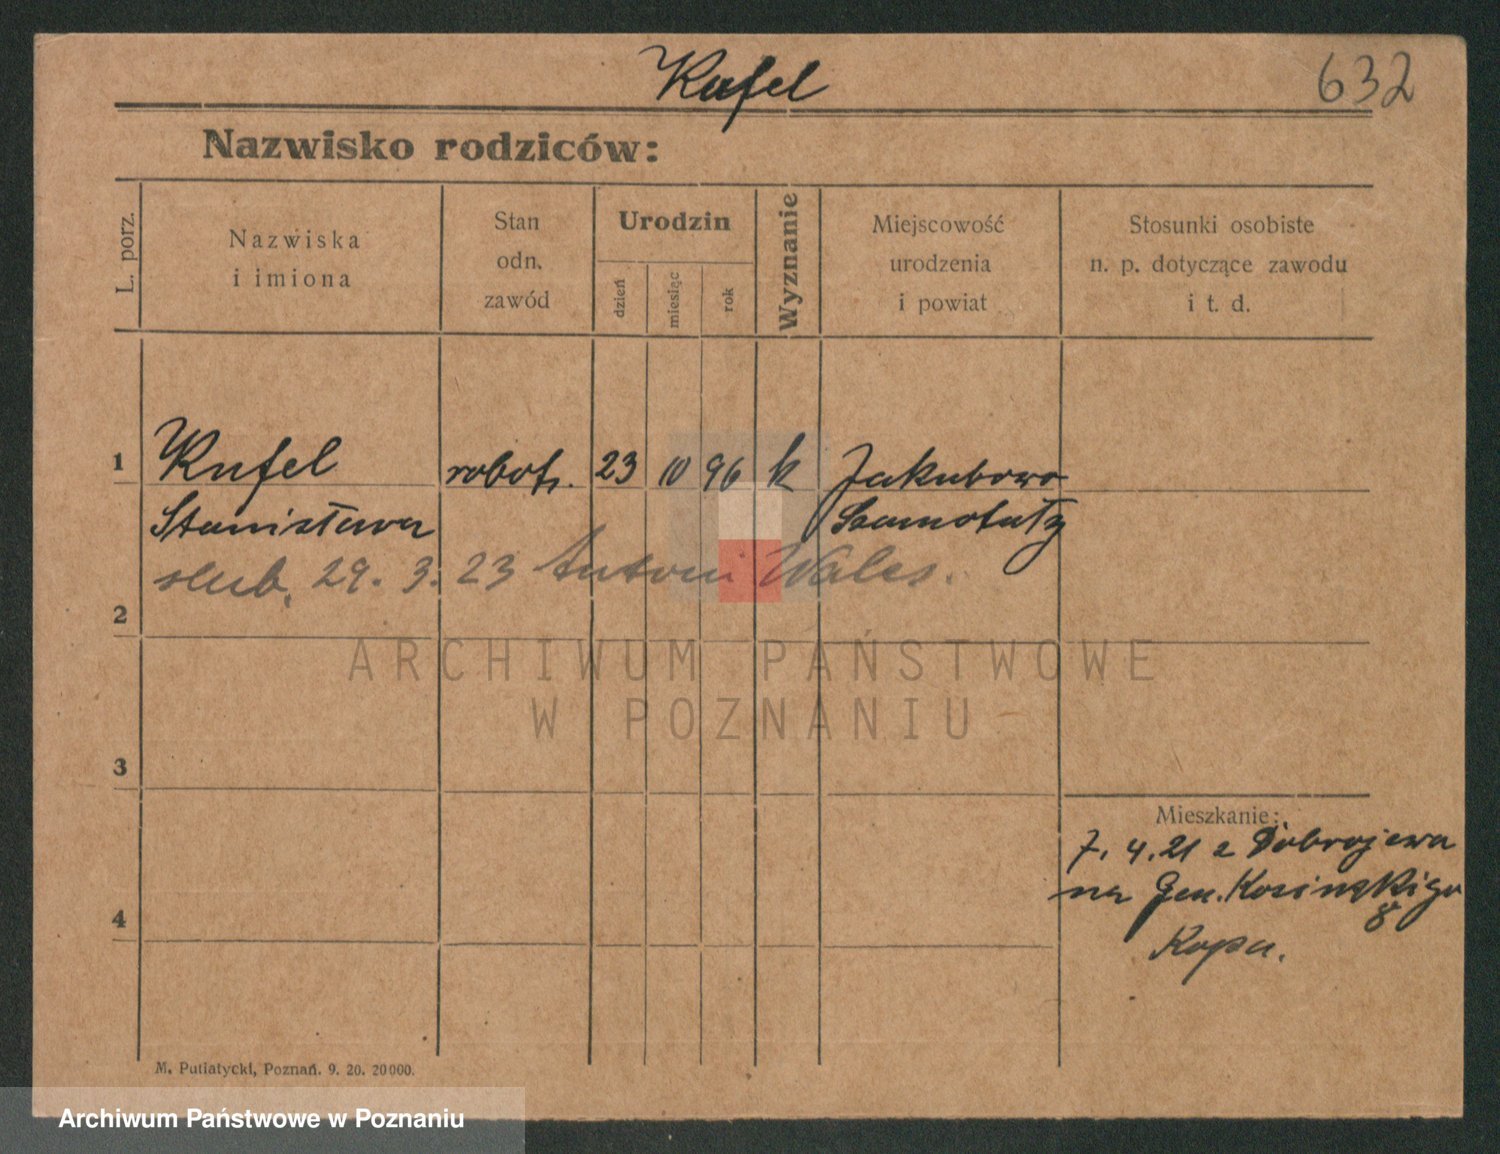 Kufel
632
Nazwisko rodziców:
L. porz.
Nazwiska
i imiona
Stan
odn.
zawód
Urodzin
dzień
miesiąc
rok
Wyznanie
Miejscowość
urodzenia
i powiat
Stosunki osobiste
n. p. dotyczące zawodu
i t. d.
1 Kufel robotn. 23 10 96 k Jakubowo
Stanisława Szamotuły
slub. 29. 3. 23 Antoni Wales.
2
3
4
Mieszkanie:
7. 4. 21 z Dobrojewa
na Gen. Kosinskiego
8
Kopa.
M. Putiatycki, Poznań. 9. 20. 20000.
ARCHIWUM PAŃSTWOWE
W POZNANIU
Archiwum Państwowe w Poznaniu